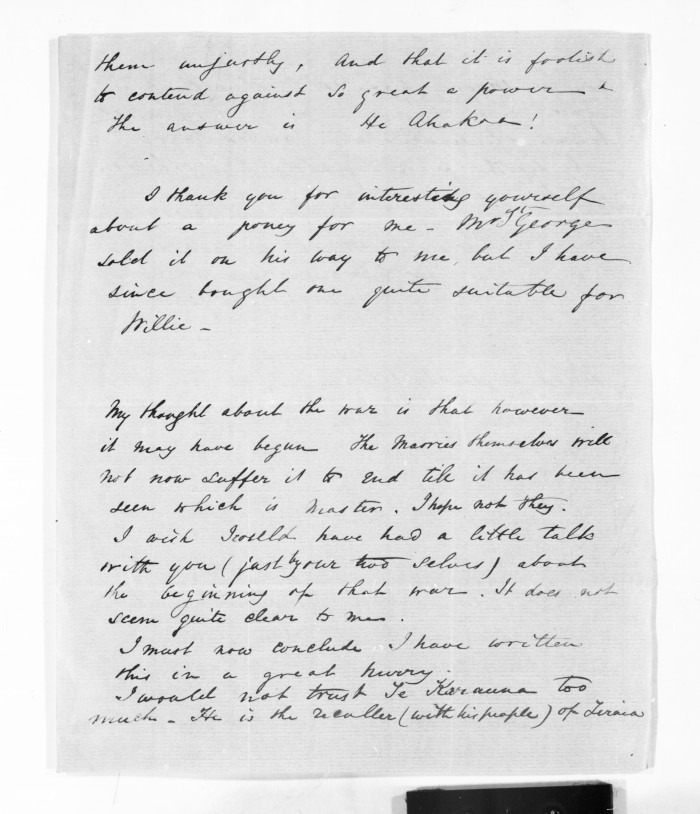 them unjustly, And that it is foolish
to contend against so great a power &
the answer is He Ahakoa!
I thank you for interesting yourself
about a poney for me - Mr St George
sold it on his way to me, but I have
since bought one quite suitable for
Willie -
My thought about the war is that however
it may have begun the Maories themselves will
not now suffer it to end till it has been
seen which is master. I hope not they.
I wish I could have had a little talk
with you (just by our two selves) about
the beginning of that war. It does not
seem quite clear to me.
I must now conclude I have written
this in a great hurry.
I would not trust Te Karauna too
much - He is the recaller (with his people) of